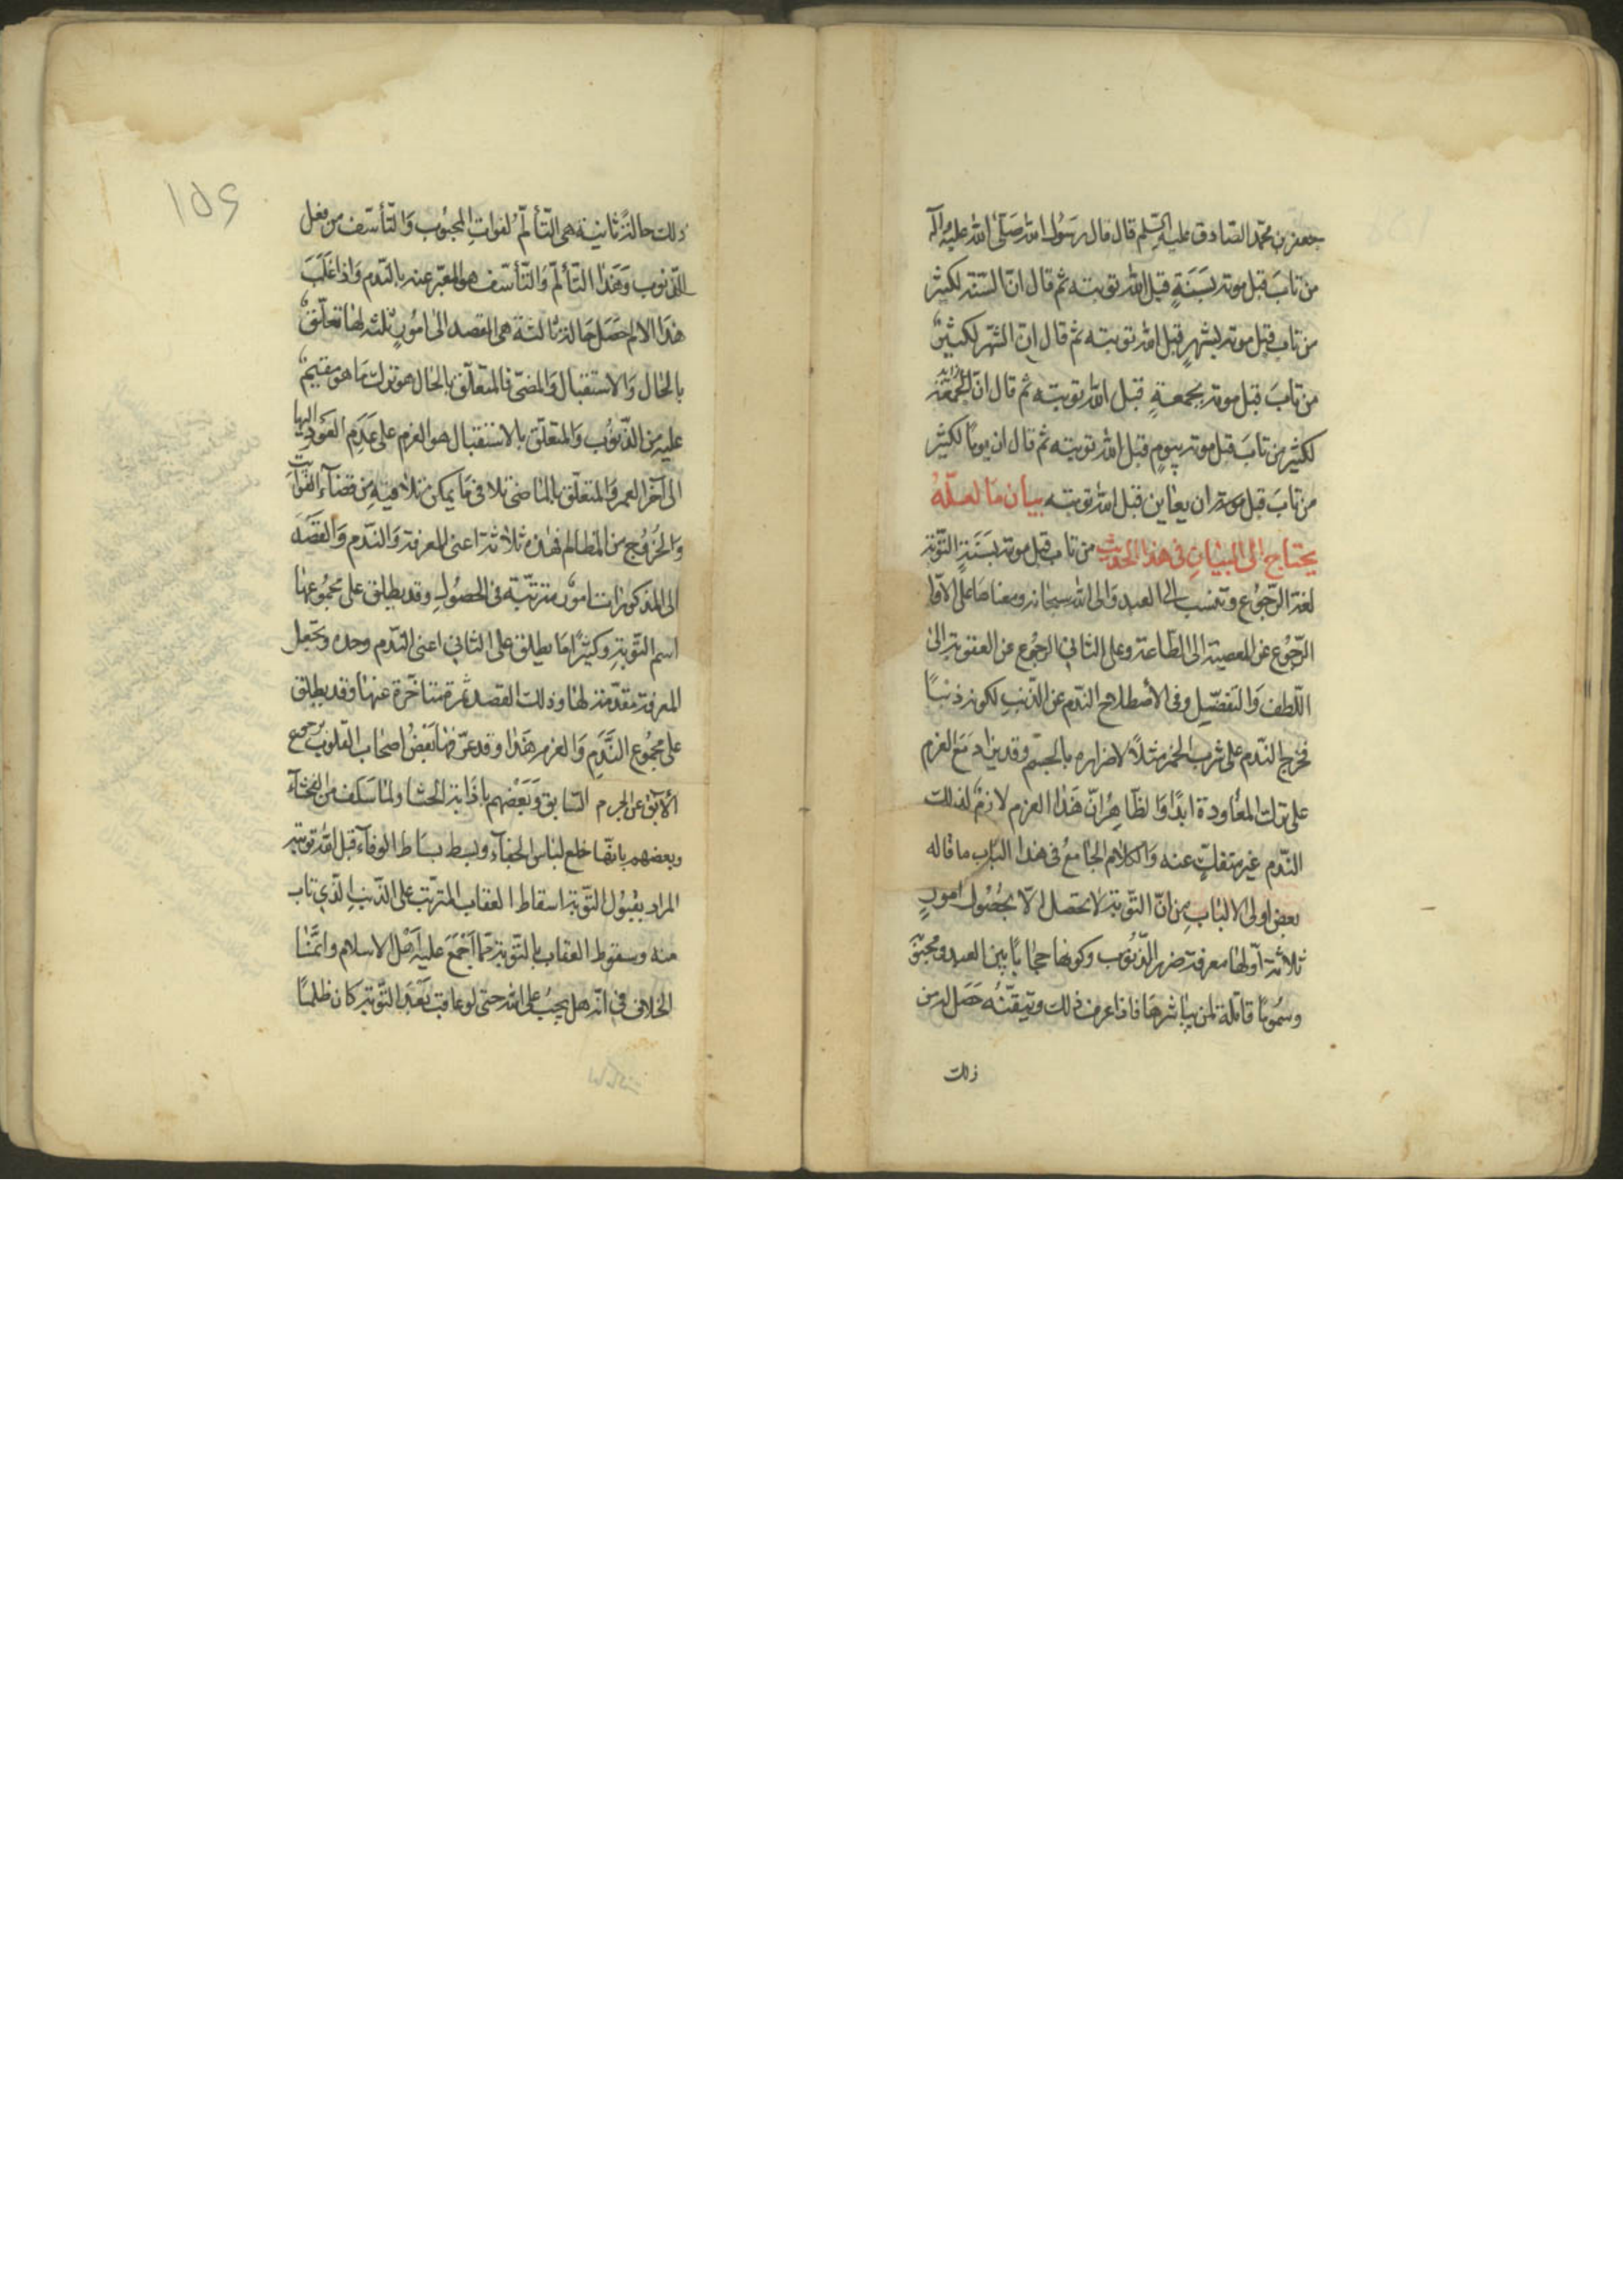 جعفر بن محمّد الصّادق عليه السّلم قال قال رسُول الله صَلّى الله عليه وآله
من تابَ قبل موته بسَنَةٍ قبل الله توبته ثم قال انّ السّنة لكثيرٌ
من تاب قبل موته بشهرٍ قبل الله توبته ثم قال انّ الشّهر لكثيرٌ
من تابَ قبل موته بجمعةٍ قبل الله توبته ثم قال انّ الجُمُعَة
لكثير من تابَ قبل موته بيومٍ قبل الله توبته ثم قال ان يومًا لكثير
من تابَ قبل موته ان يعاين قبل الله توبته بيان مَا لعلّهُ
يحتاج الى البيَانِ فى هذا الحديث من تاب قبل موته بسَنَةٍ التّوبة
لغة الرّجوع وتنسب الى العبد وَالى الله سبحانه ومعناها على الاوّل
الرّجوع عن المعصية الى الطّاعة وعلى الثاني الرجُوع عن العقوبة الى
اللّطف وَالتفضّل وفى الأصطلاح النّدم عن الذّنبِ لكونه ذنبًا
فخرج النّدم على شرب الخمر مثلاً لاضراره بالجسم وقد يزاد مَعَ العزم
على ترك المعَاودة ابدًا وَالظّاهِرُ انّ هَذا العزم لازمٌ لذلك
النّدم غير منفكٍّ عنه وَالكلام الجَامعُ فى هذا البَاب ما قاله
بعض اولى الالبَاب مِن انّ التّوبة لا تحصل الاّ بحُصُول امورٍ
ثلاثة اوّلها معرفة ضرر الذّنُوب وكونها حجابًا بين العبد ومحبُوبه
وسُمُومًا قاتلة لمن يباشرهَا فاذا عرف ذلك وتيقّنهُ حَصَل له من
ذلك
ذلك حالةٌ ثانية هى التّألّمُ لفواتِ المحبُوب وَالتّأسّف من فعل
الذنوب وَهَذا التّألّم وَالتّأسّف هو المعبّر عنه بالنّدم وَاذا غَلَبَ
هذا الالم حَصَل حَالةٌ ثالثة هى القصد الى امُورٍ ثلثة لهَا تعلّقٌ
بالحَال وَالاستقبال وَالمضىّ فالمتعلّق بالحَال هو ترك مَا هو مقيمٌ
عليه من الذّنُوب وَالمتعلّق بالاستقبال هو العزم على عَدَمِ العَود اليها
الى آخر العمر وَالمتعلّق بالمَاضى تلافى مَا يمكن تلافيهِ من قضآء الفوَايت
وَالخرُوج من المظالم فهذه ثلاثة اعنى المعرفة وَالنّدم وَالقصَد
الى المذكورَات امورٌ مترتّبة فى الحصُولِ وقد يطلق على مجمُوعها
اسم التّوبةِ وكثيرًا مَا يطلق على الثاني اعنى النّدم وحده وتجعل
المعرفة مقدّمة لهَا وذلك القصد ثمرة متأخّرة عنهَا وقد يطلق
على مجمُوع النَّدَمِ وَالعزم هَذا وقد عرّفها بَعض اصحَاب القلُوب برجوع
الآبق عن الجرم السّابق وَبَعْضهم باذَابة الحشَا ولما سَلف من الفحشَآء
وبعضهم بانّها خلع لبَاس الجفآء وبسط بسَاط الوفآء قبل الله توبته
المراد بقبُول التّوبة اسقاط العقاب المترتّب على الذّنبِ الّذي تاب
منه وسقوط العقاب بالتّوبة مما اجْمَعَ عليه اَهْل الاسلام وانّمَا
الخلاف فى انّه هل يجبُ على الله حتى لو عاقب بَعْدَ التّوبة كان ظلمًا